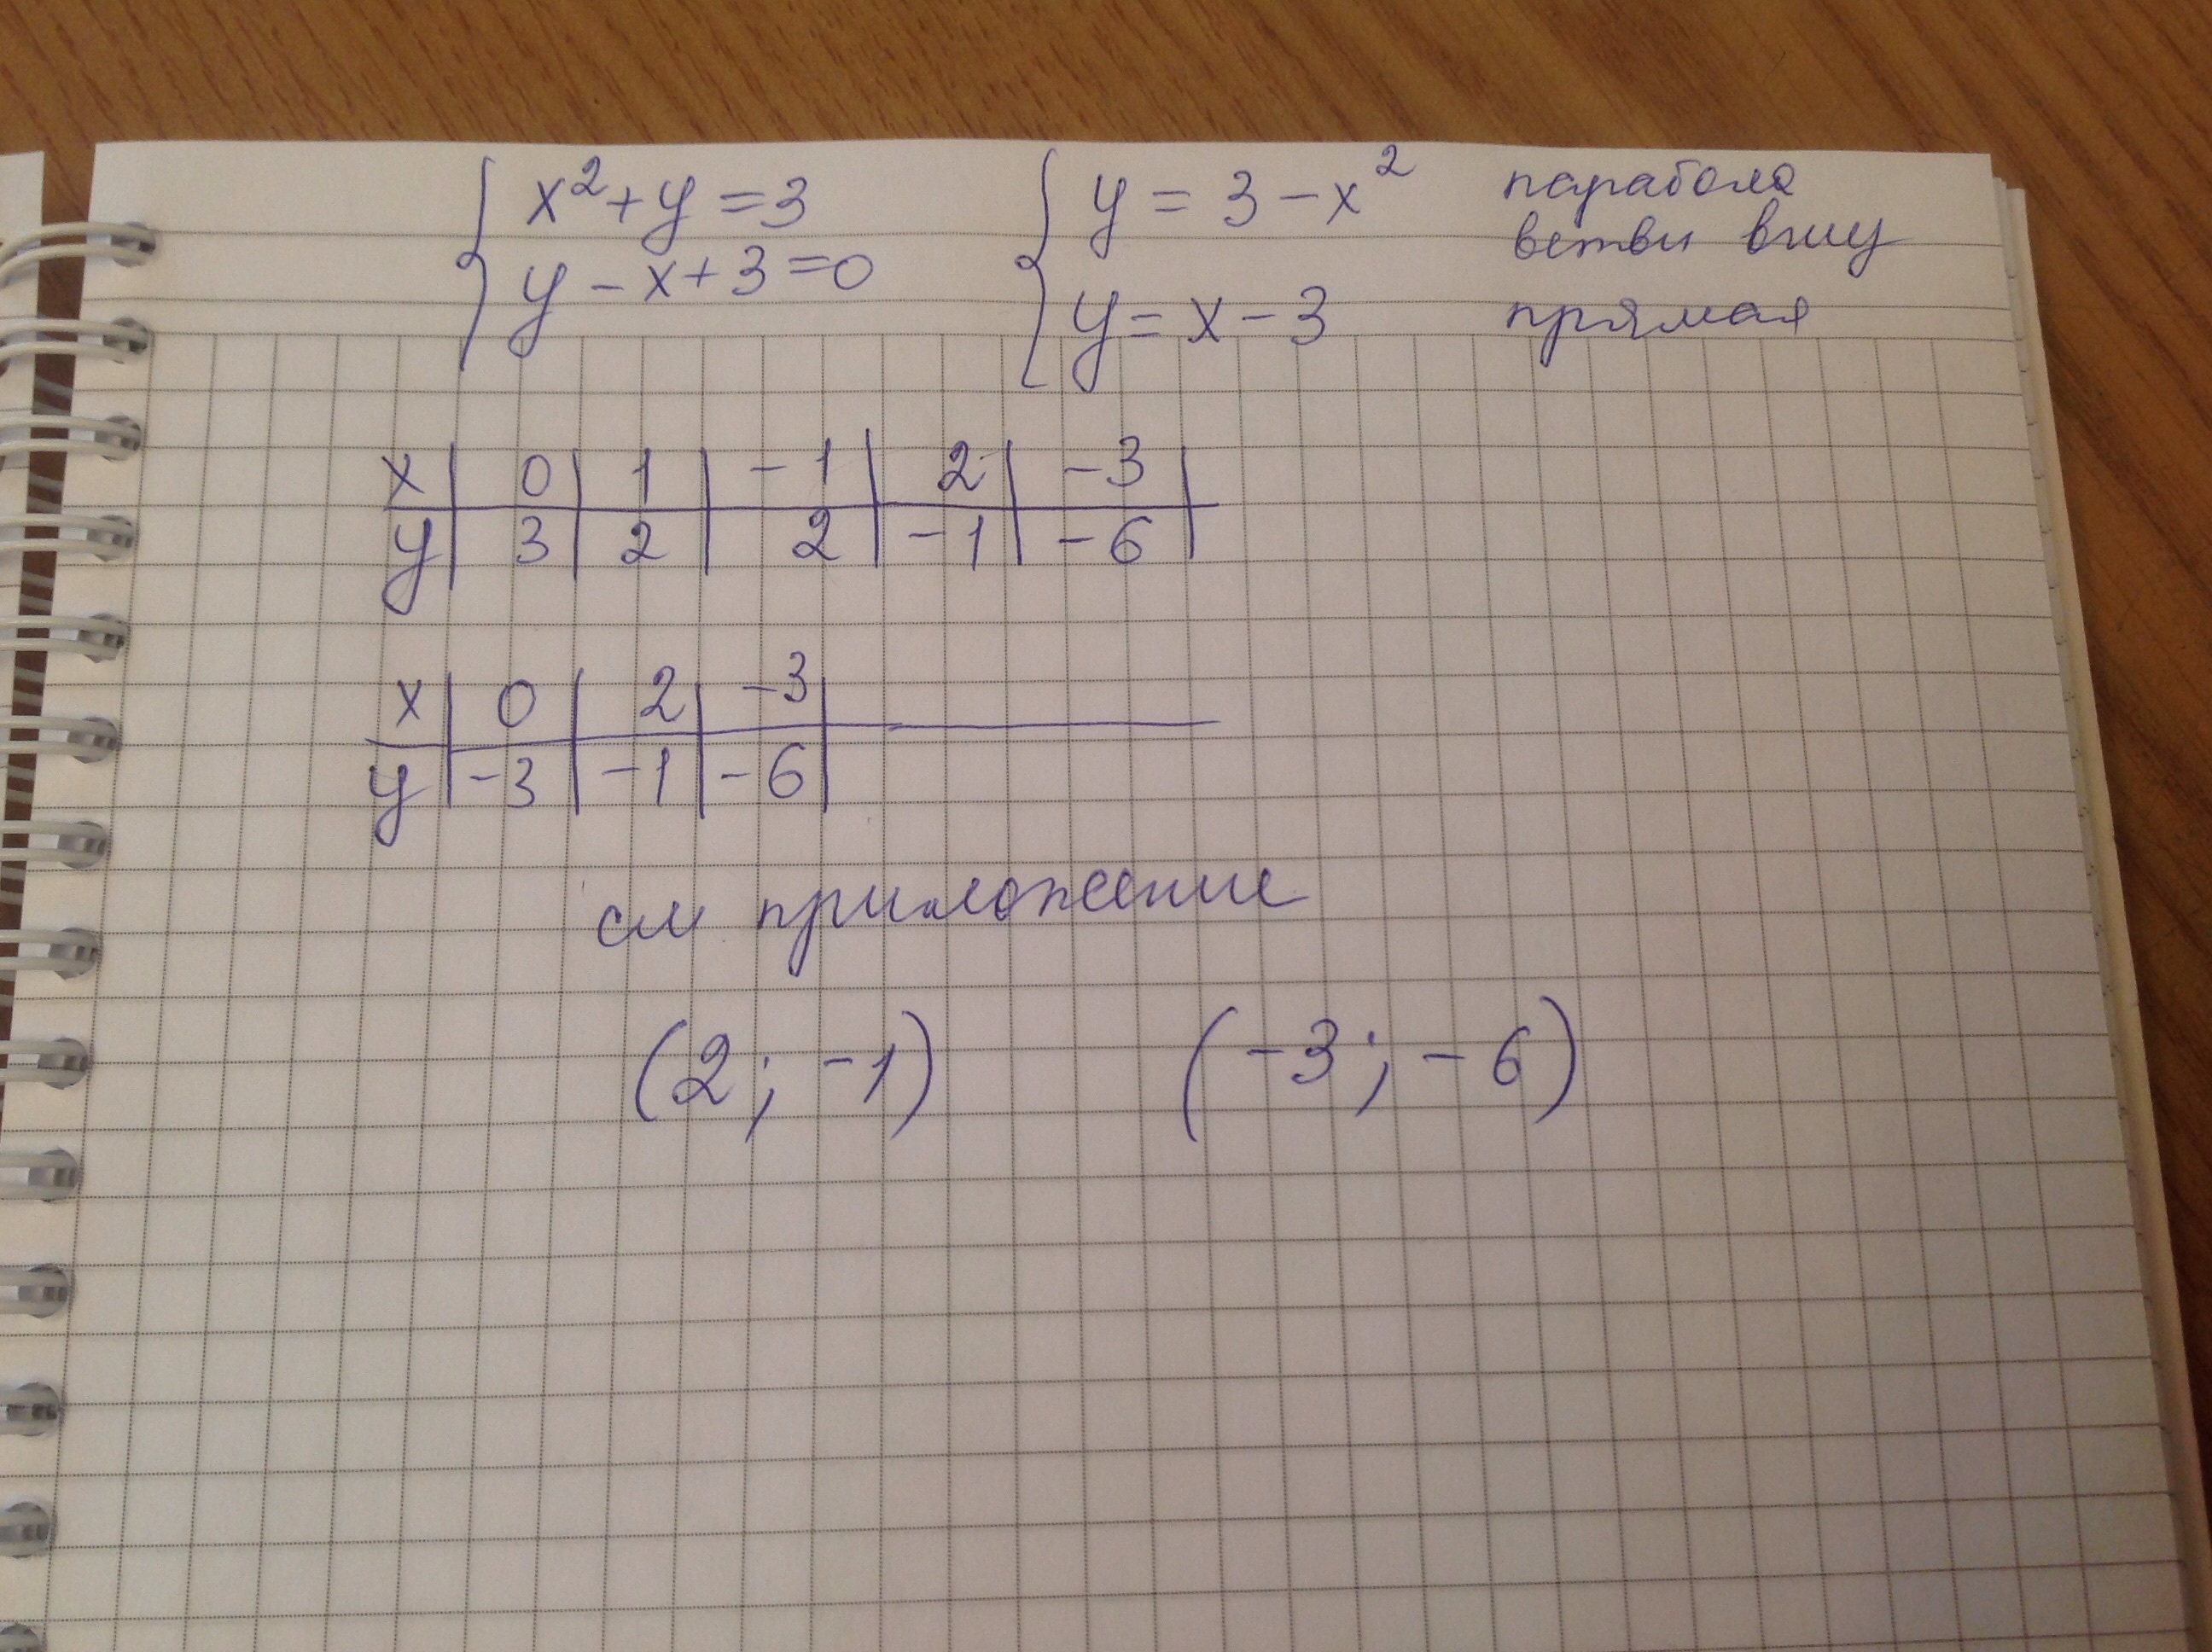 { x² + y = 3 { y = 3 - x² парабола
ветви вниз
y - x + 3 = 0 y = x - 3 прямая
x | 0 | 1 | -1 | 2 | -3 |
y | 3 | 2 | 2 | -1 | -6 |
x | 0 | 2 | -3 |
y | -3 | -1 | -6 |
см приложение
(2; -1) (-3; -6)